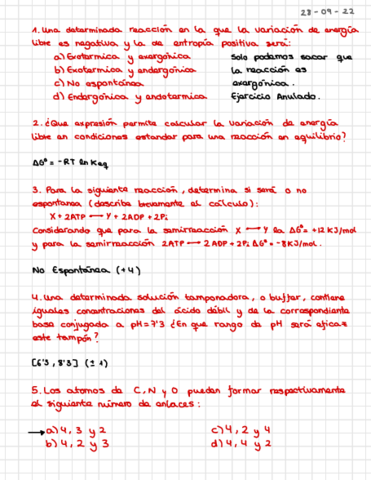 28-09-22
1. Una determinada reacción en la que la variación de energía
libre es negativa y la de entropía positiva será:
a) Exotermica y exergónica
Solo podemos sacar que
b) Exotermica y endergónica
la reacción es
c) No espontanea
exergónica.
d) Endergónica y endotermica
Ejercicio Anulado.
2. ¿Que expresión permite calcular la variación de energía
libre en condiciones estandar para una reacción en equilibrio?
ΔG° = -RT ln Keq
3. Para la siguiente reacción, determina si será o no
espontanea (describe brevemente el cálculo):
X + 2ATP → Y + 2ADP + 2Pi
Considerando que para la semirreacción X → Y la ΔG° = +12 KJ/mol
y para la semirreacción 2ATP → 2ADP + 2Pi ΔG° = -8KJ/mol.
No Espontánea (+4)
4. Una determinada solución tamponadora, o buffer, contiene
iguales concentraciones del ácido débil y de la correspondiente
base conjugada a pH=7'3 ¿En que rango de pH será eficaz
este tampón?
[6'3, 8'3] (± 1)
5. Los atomos de C, N y O pueden formar respectivamente
el siguiente número de enlaces:
→ a) 4, 3 y 2
c) 4, 2 y 4
b) 4, 2 y 3
d) 4, 4 y 2